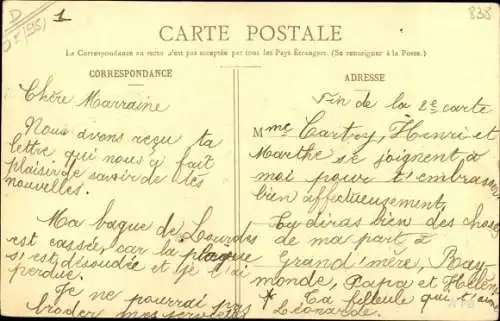 D
1
838
CARTE POSTALE
La Correspondance au recto n'est pas acceptée par tous les Pays Étrangers. (Se renseigner à la Poste.)
CORRESPONDANCE
Chère Marraine
Nous avons reçu ta
lettre qui nous a fait
plaisir de savoir de tes
nouvelles.
Ma bague de Lourdes
est cassée, car la plaque
s'est désoudée et je l'ai
perdue.
Je ne pourrai pas
broder mes serviettes
ADRESSE
Fin de la 2e carte
Mme Cartoy, Henri et
Marthe se joignent à
moi pour t'embrasser
bien affectueusement,
Ty diras bien des choses
de ma part à
Grand'mère, Ray-
monde, Papa et Hélène
* Ta filleule qui t'aime
Léonarde.